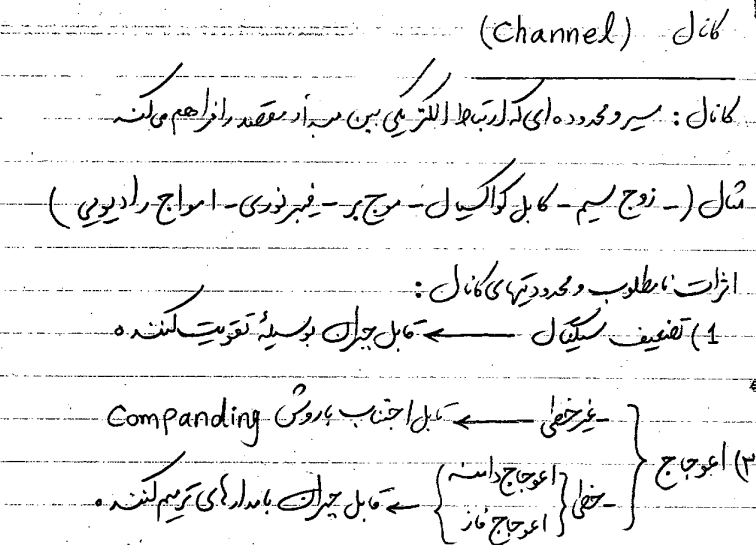 کانال (Channel)
کانال : مسیر و محدوده ای که ارتباط الکتریکی بین مبدأ و مقصد را فراهم می‌کند
مثال (- زوج سیم - کابل کواکسیال - موج بر - فیبر نوری - امواج رادیویی )
اثرات نامطلوب و محدودیتهای کانال :
1) تضعیف سیگنال ← قابل جبران بوسیلهٔ تقویت کننده
۲) اعوجاج { - غیرخطی ← قابل اجتناب با روش Companding
- خطی { اعوجاج دامنه
اعوجاج فاز } ← قابل جبران با مدارهای ترمیم کننده